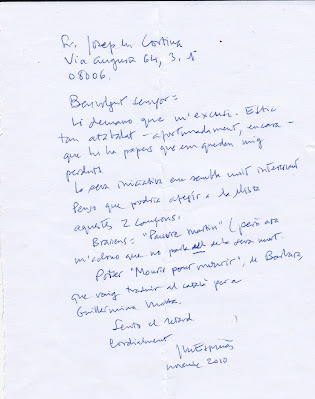 Sr. Josep M. Cortina
Via Augusta 64, 3. 1
08006.
Benvolgut senyor =
Li demano que m'excusi. Estic
tan atabalat - afortunadament, encara -
que hi ha papers que em queden mig
perduts
La seva iniciativa em sembla molt interessant
Penso que podria afegir a la llista
aquestes 2 cançons.
Brassens = "Pauvre Martin" (però ara
m'adono que no parla de la seva mort.
Potser "Mourir pour mourir", de Barbara,
que vaig traduir al català per a
Guillermina Motta.
Sento el retard
Cordialment
JM Espinàs
novembre 2010